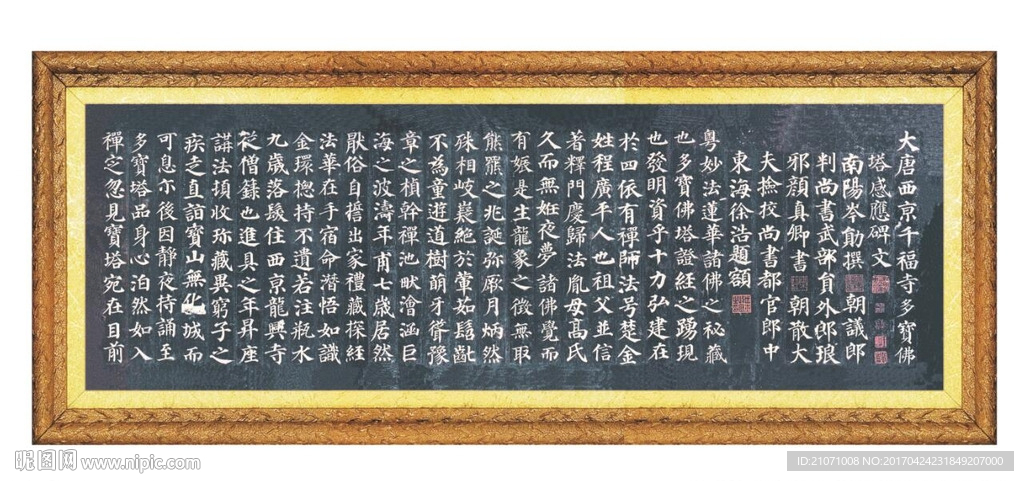 大唐西京千福寺多寶佛
塔感應碑文
南陽岑勛撰 朝議郎
判尚書武部員外郎琅
邪顏真卿書 朝散大
夫撿挍尚書都官郎中
東海徐浩題額
粵妙法蓮華諸佛之秘藏
也多寶佛塔證經之踴現
也發明資乎十力弘建在
於四依有禪師法号楚金
姓程廣平人也祖父並信
著釋門慶歸法胤母高氏
久而無妊夜夢諸佛覺而
有娠是生龍象之徵無取
熊羆之兆誕弥厥月炳然
殊相岐嶷絕於葷茹髫齔
不為童遊道樹萌牙聳豫
章之楨幹禪池畎澮涵巨
海之波濤年甫七歲居然
猒俗自誓出家禮藏探經
法華在手宿命潛悟如識
金環揔持不遺若注瓶水
九歲落髮住西京龍興寺
從僧籙也進具之年昇座
講法頃收珎藏異窮子之
疾走直詣寶山無化城而
可息尒後因靜夜持誦至
多寶塔品身心泊然如入
禪定忽見寶塔宛在目前
昵图网 www.nipic.com
ID:21071008 NO:20170424231849207000